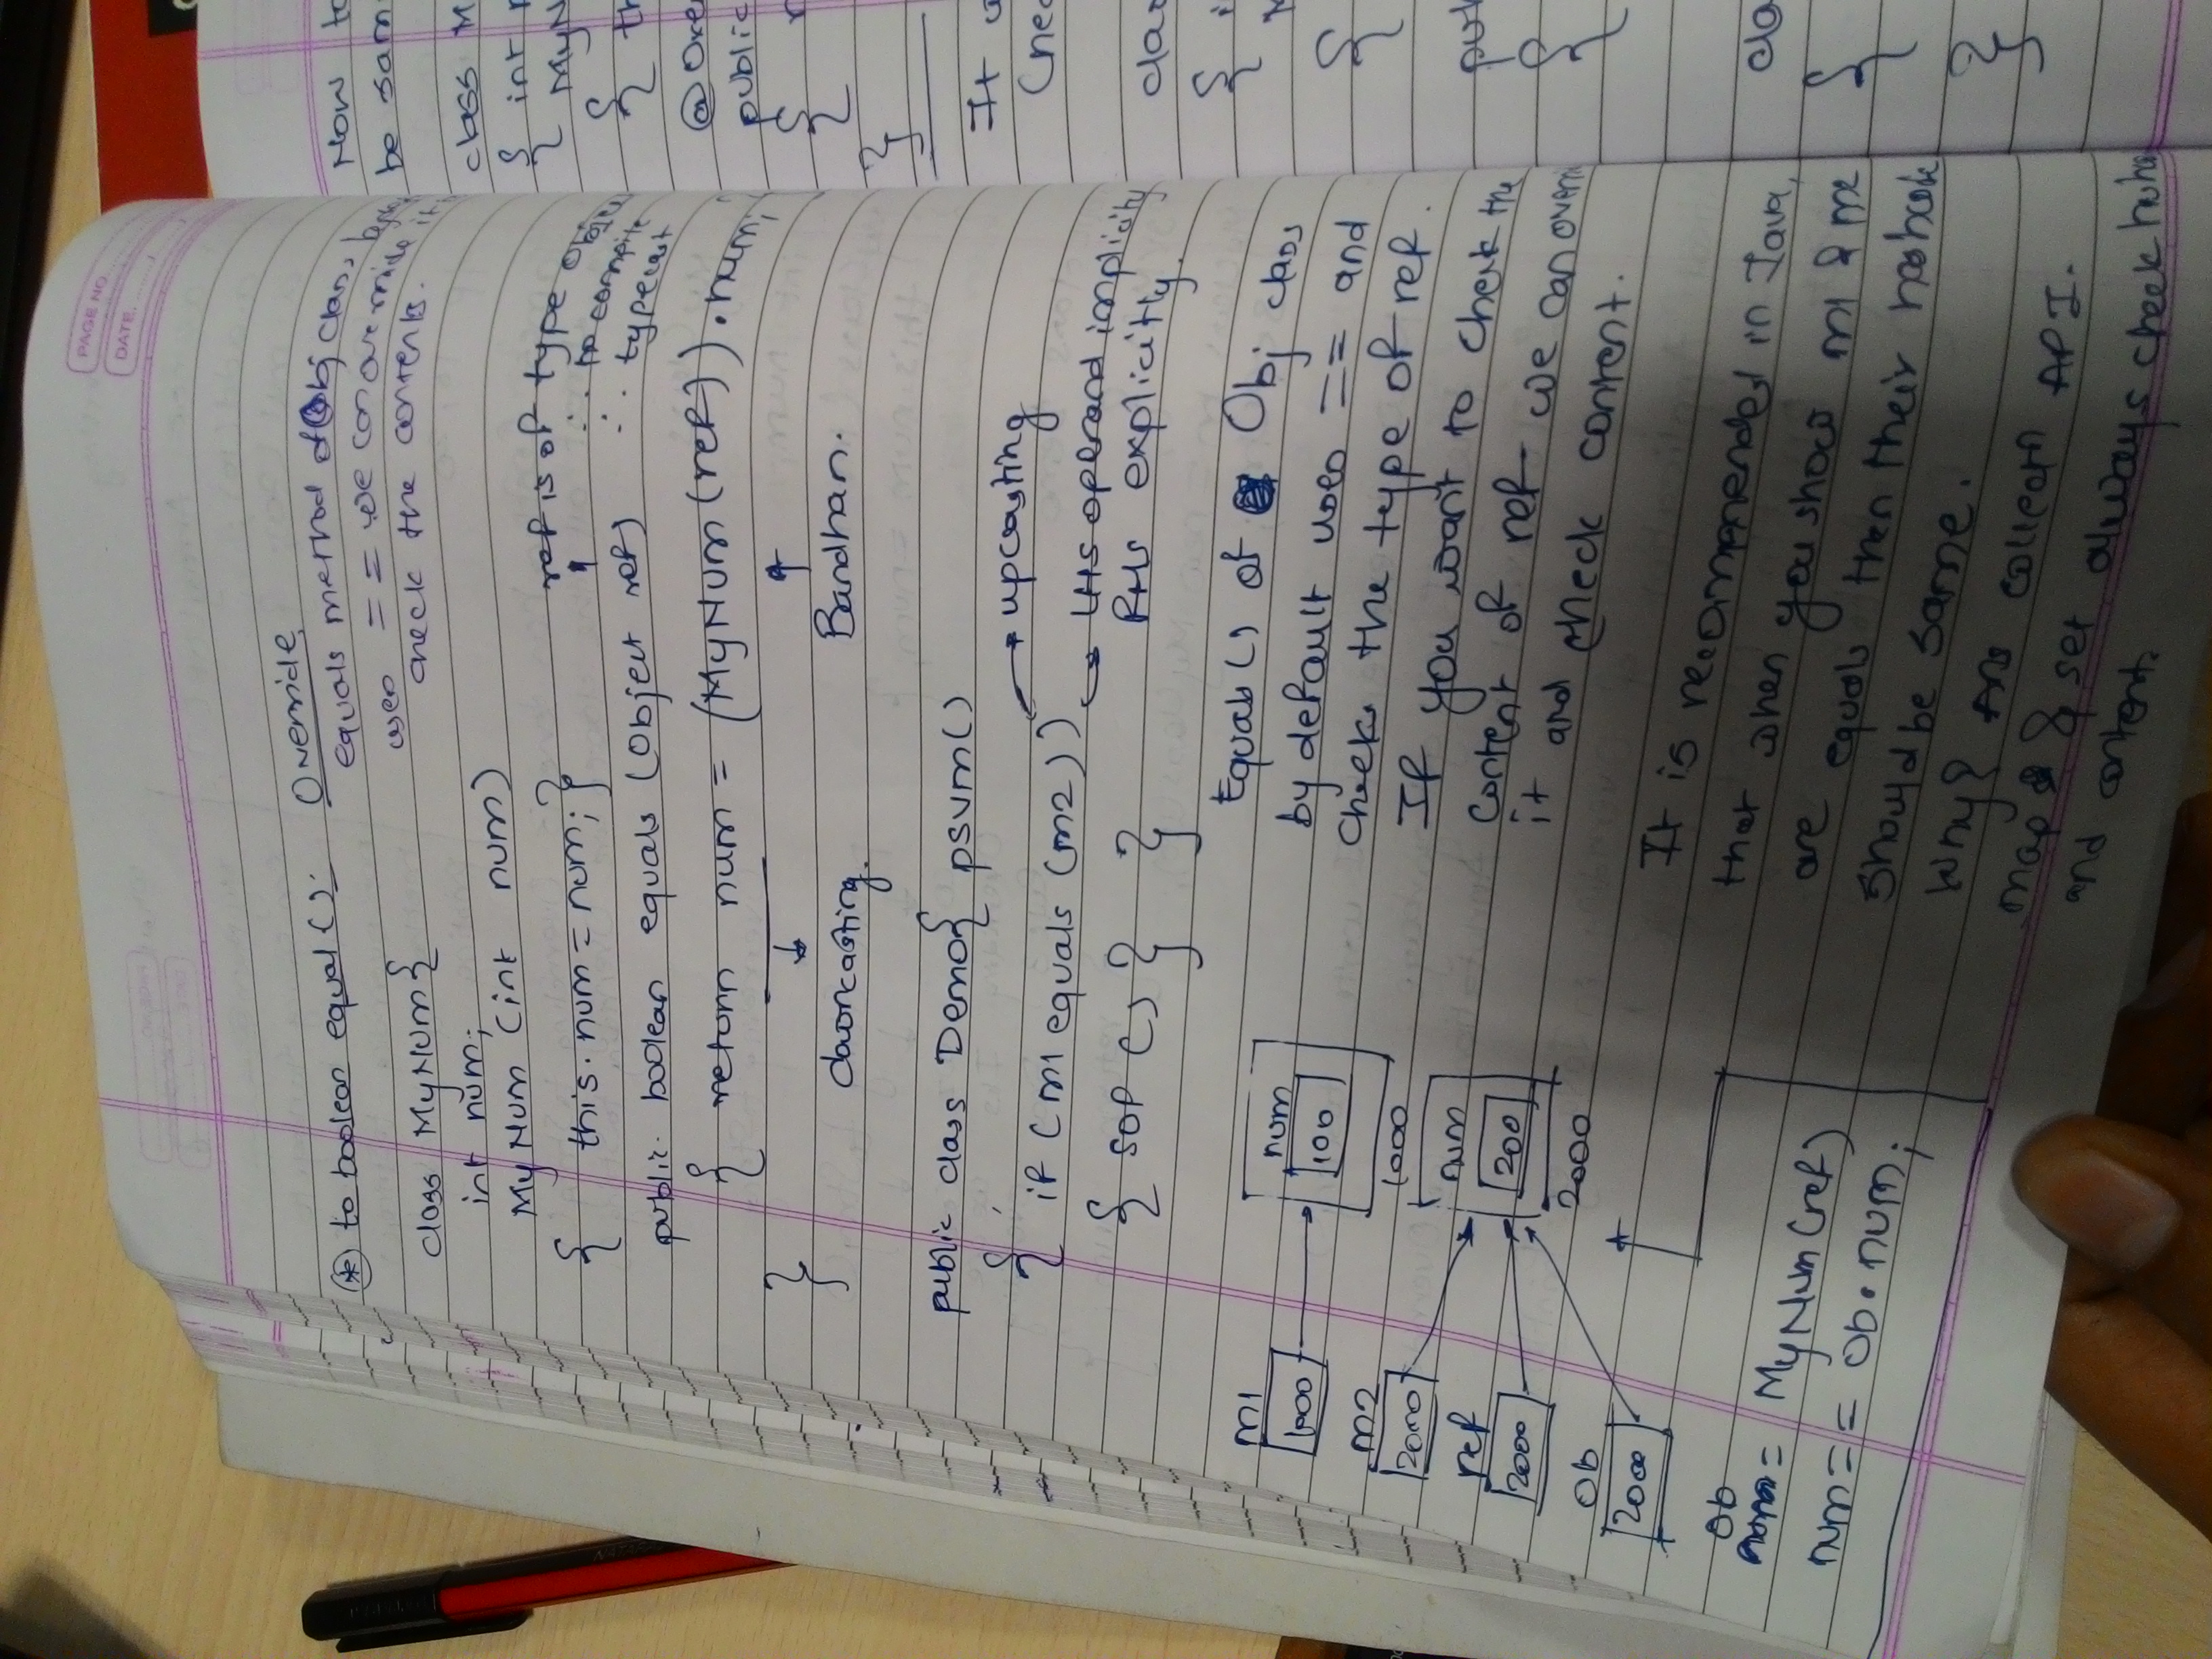 PAGE NO.
DATE.
* to boolean equal():
Override
equals method of Obj class,
uses == we can override it
check the contents.
class MyNum{
int num;
MyNum (int num)
{ this.num = num; }
ref is of type Object
∴ to compile
∴ typecast
public boolean equals (Object ref)
{ return num = (MyNum(ref)).num;
}
downcasting.
Bandhan.
public class Demo{ psvm()
{ if (m1 equals (m2))
upcasting
LHS operand implicity
RHS explicitly.
{ SOP () } }
m1
1000
num
100
1000
m2
2000
num
200
2000
ref
2000
ob
2000
ob
= MyNum(ref)
num == ob.num;
Equals() of Obj class
by default uses == and
checks the type of ref.
If you want to check the
content of ref we can overri
it and check content.
It is recommended in Java,
that when you show m1 & m2
are equals then their hashcode
should be same.
Why? Ans collectn API.
map & set always check hashco
and content.
Now to
be sam
class M
{ int n
MyN
{ th
@Over
public
{ r
}
It
(nec
clas
{ i
M
{
pub
{
cla
{
}